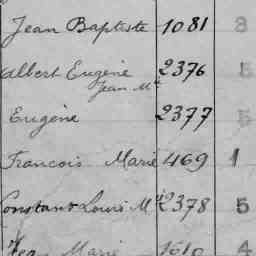 Jean Baptiste 1081 3
Albert Eugène 2376 5
Jean Mie
Eugène 2377 5
Francois Marie 469 1
Constant Louis Mie 2378 5
Marie 1610 4